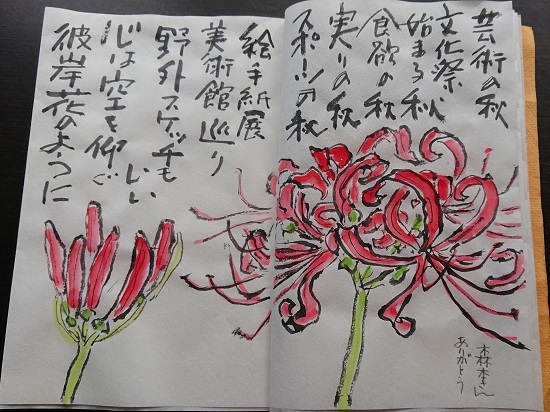 芸術の秋
文化祭
始まる秋
食欲の秋
実りの秋
スポーツの秋
森本さん
ありがとう
絵手紙展
美術館巡り
野外スケッチも
いい
心は空を仰ぐ
彼岸花のように